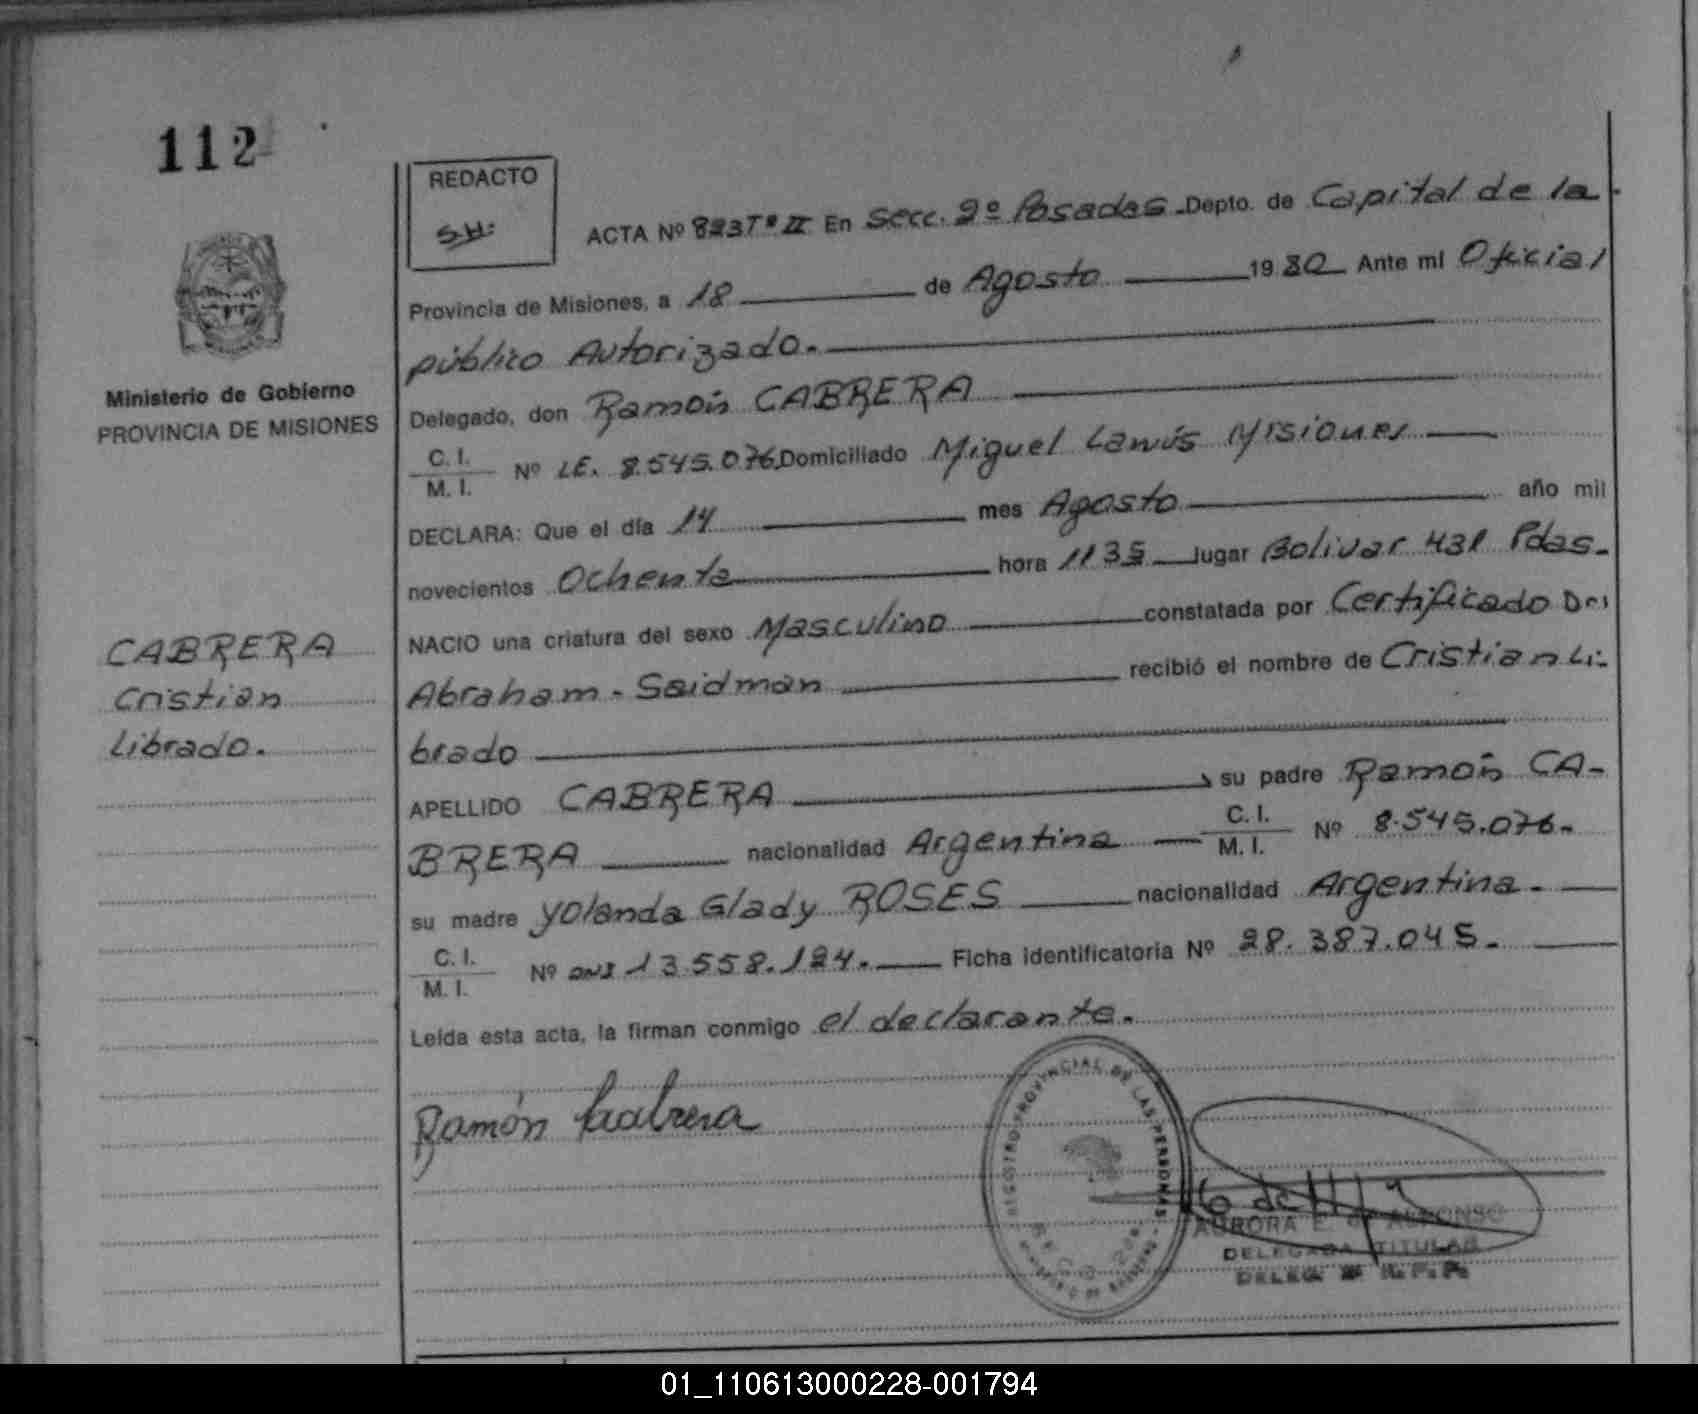 112
REDACTO
S.H.
ACTA Nº 823 Tº II En Secc. 2º Posadas. Depto. de Capital de la
Provincia de Misiones, a 18 de Agosto 1980 Ante mi Oficial
público Autorizado.
Delegado, don Ramón CABRERA
C. I.
M. I. Nº LE. 8.545.076 Domiciliado Miguel Lanús Misiones
DECLARA: Que el día 14 mes Agosto año mil
novecientos Ochenta hora 1135 lugar Bolivar 431 Pdas.
NACIO una criatura del sexo Masculino constatada por Certificado Dr.
Abraham - Saidman recibió el nombre de Cristian Li-
brado
APELLIDO CABRERA su padre Ramón CA-
BRERA nacionalidad Argentina C. I.
M. I. Nº 8.545.076.
su madre Yolanda Glady ROSES nacionalidad Argentina.
C. I.
M. I. Nº DNI 13.558.124. Ficha identificatoria Nº 28.387.045.
Leída esta acta, la firman conmigo el declarante.
Ramón Cabrera
Ministerio de Gobierno
PROVINCIA DE MISIONES
CABRERA
Cristian
Librado.
REGISTRO PROVINCIAL DE LAS PERSONAS
AURORA E. de ALFONSO
DELEGADA TITULAR
DELEG. R. P. P.
01_110613000228-001794